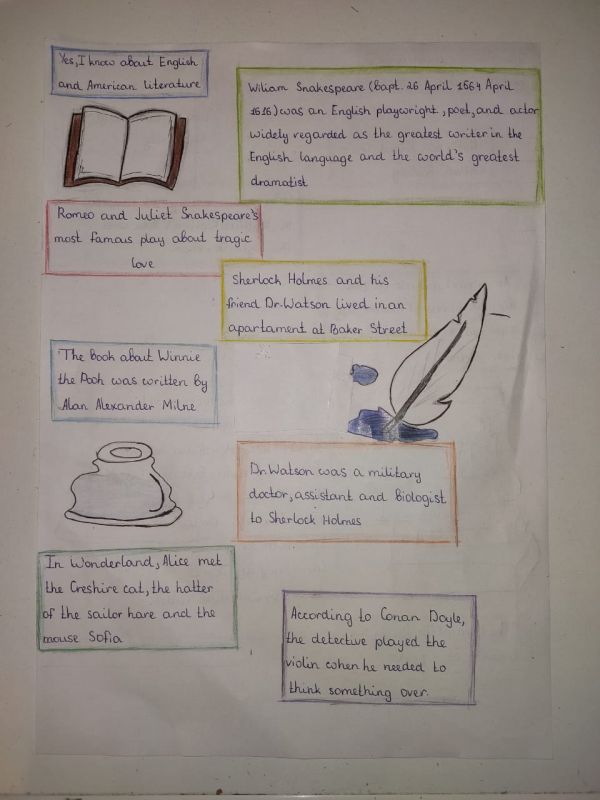 Yes, I know about English
and American literature
Wiliam Snakespeare (Bapt. 26 April 1564 April
1616) was an English playwright, poet, and actor
widely regarded as the greatest writer in the
English language and the world's greatest
dramatist
Romeo and Juliet Snakespeare's
most famous play about tragic
love
Sherlock Holmes and his
friend Dr. Watson lived in an
apartament at Baker Street
The Book about Winnie
the Pooh was written by
Alan Alexander Milne
Dr. Watson was a military
doctor, assistant and Biologist
to Sherlock Holmes
In Wonderland, Alice met
the Creshire cat, the hatter
of the sailor hare and the
mouse Sofia
According to Conan Doyle,
the detective played the
violin when he needed to
think something over.